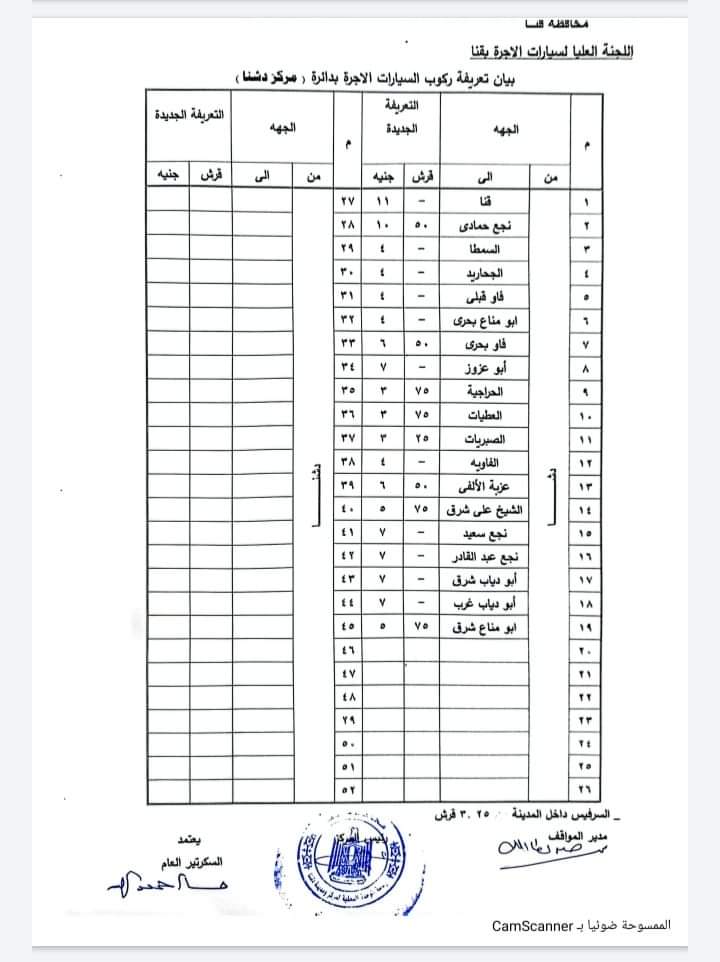 محافظة قنا
اللجنة العليا لسيارات الاجرة بقنا
بيان تعريفة ركوب السيارات الاجرة بدائرة ( مركز دشنا )
م الجهه التعريفة الجديدة م الجهه التعريفة الجديدة
من الى قرش جنيه من الى قرش جنيه
دشنا
دشنا
١ قنا - ١١ ٢٧
٢ نجع حمادى ٥٠ ١٠ ٢٨
٣ السمطا - ٤ ٢٩
٤ الجحاريد - ٤ ٣٠
٥ فاو قبلى - ٤ ٣١
٦ ابو مناع بحرى - ٤ ٣٢
٧ فاو بحرى ٥٠ ٦ ٣٣
٨ أبو عزوز - ٧ ٣٤
٩ الحراجية ٧٥ ٣ ٣٥
١٠ العطيات ٧٥ ٣ ٣٦
١١ الصبريات ٢٥ ٣ ٣٧
١٢ الفاويه - ٤ ٣٨
١٣ عزبة الألفى ٥٠ ٦ ٣٩
١٤ الشيخ على شرق ٧٥ ٥ ٤٠
١٥ نجع سعيد - ٧ ٤١
١٦ نجع عبد القادر - ٧ ٤٢
١٧ أبو دياب شرق - ٧ ٤٣
١٨ أبو دياب غرب - ٧ ٤٤
١٩ ابو مناع شرق ٧٥ ٥ ٤٥
٢٠ ٤٦
٢١ ٤٧
٢٢ ٤٨
٢٣ ٢٩
٢٤ ٥٠
٢٥ ٥١
٢٦ ٥٢
_ السرفيس داخل المدينة ٣.٢٥ قرش
مدير المواقف
رئيس المركز
يعتمد
السكرتير العام
الممسوحة ضوئيا بـ CamScanner